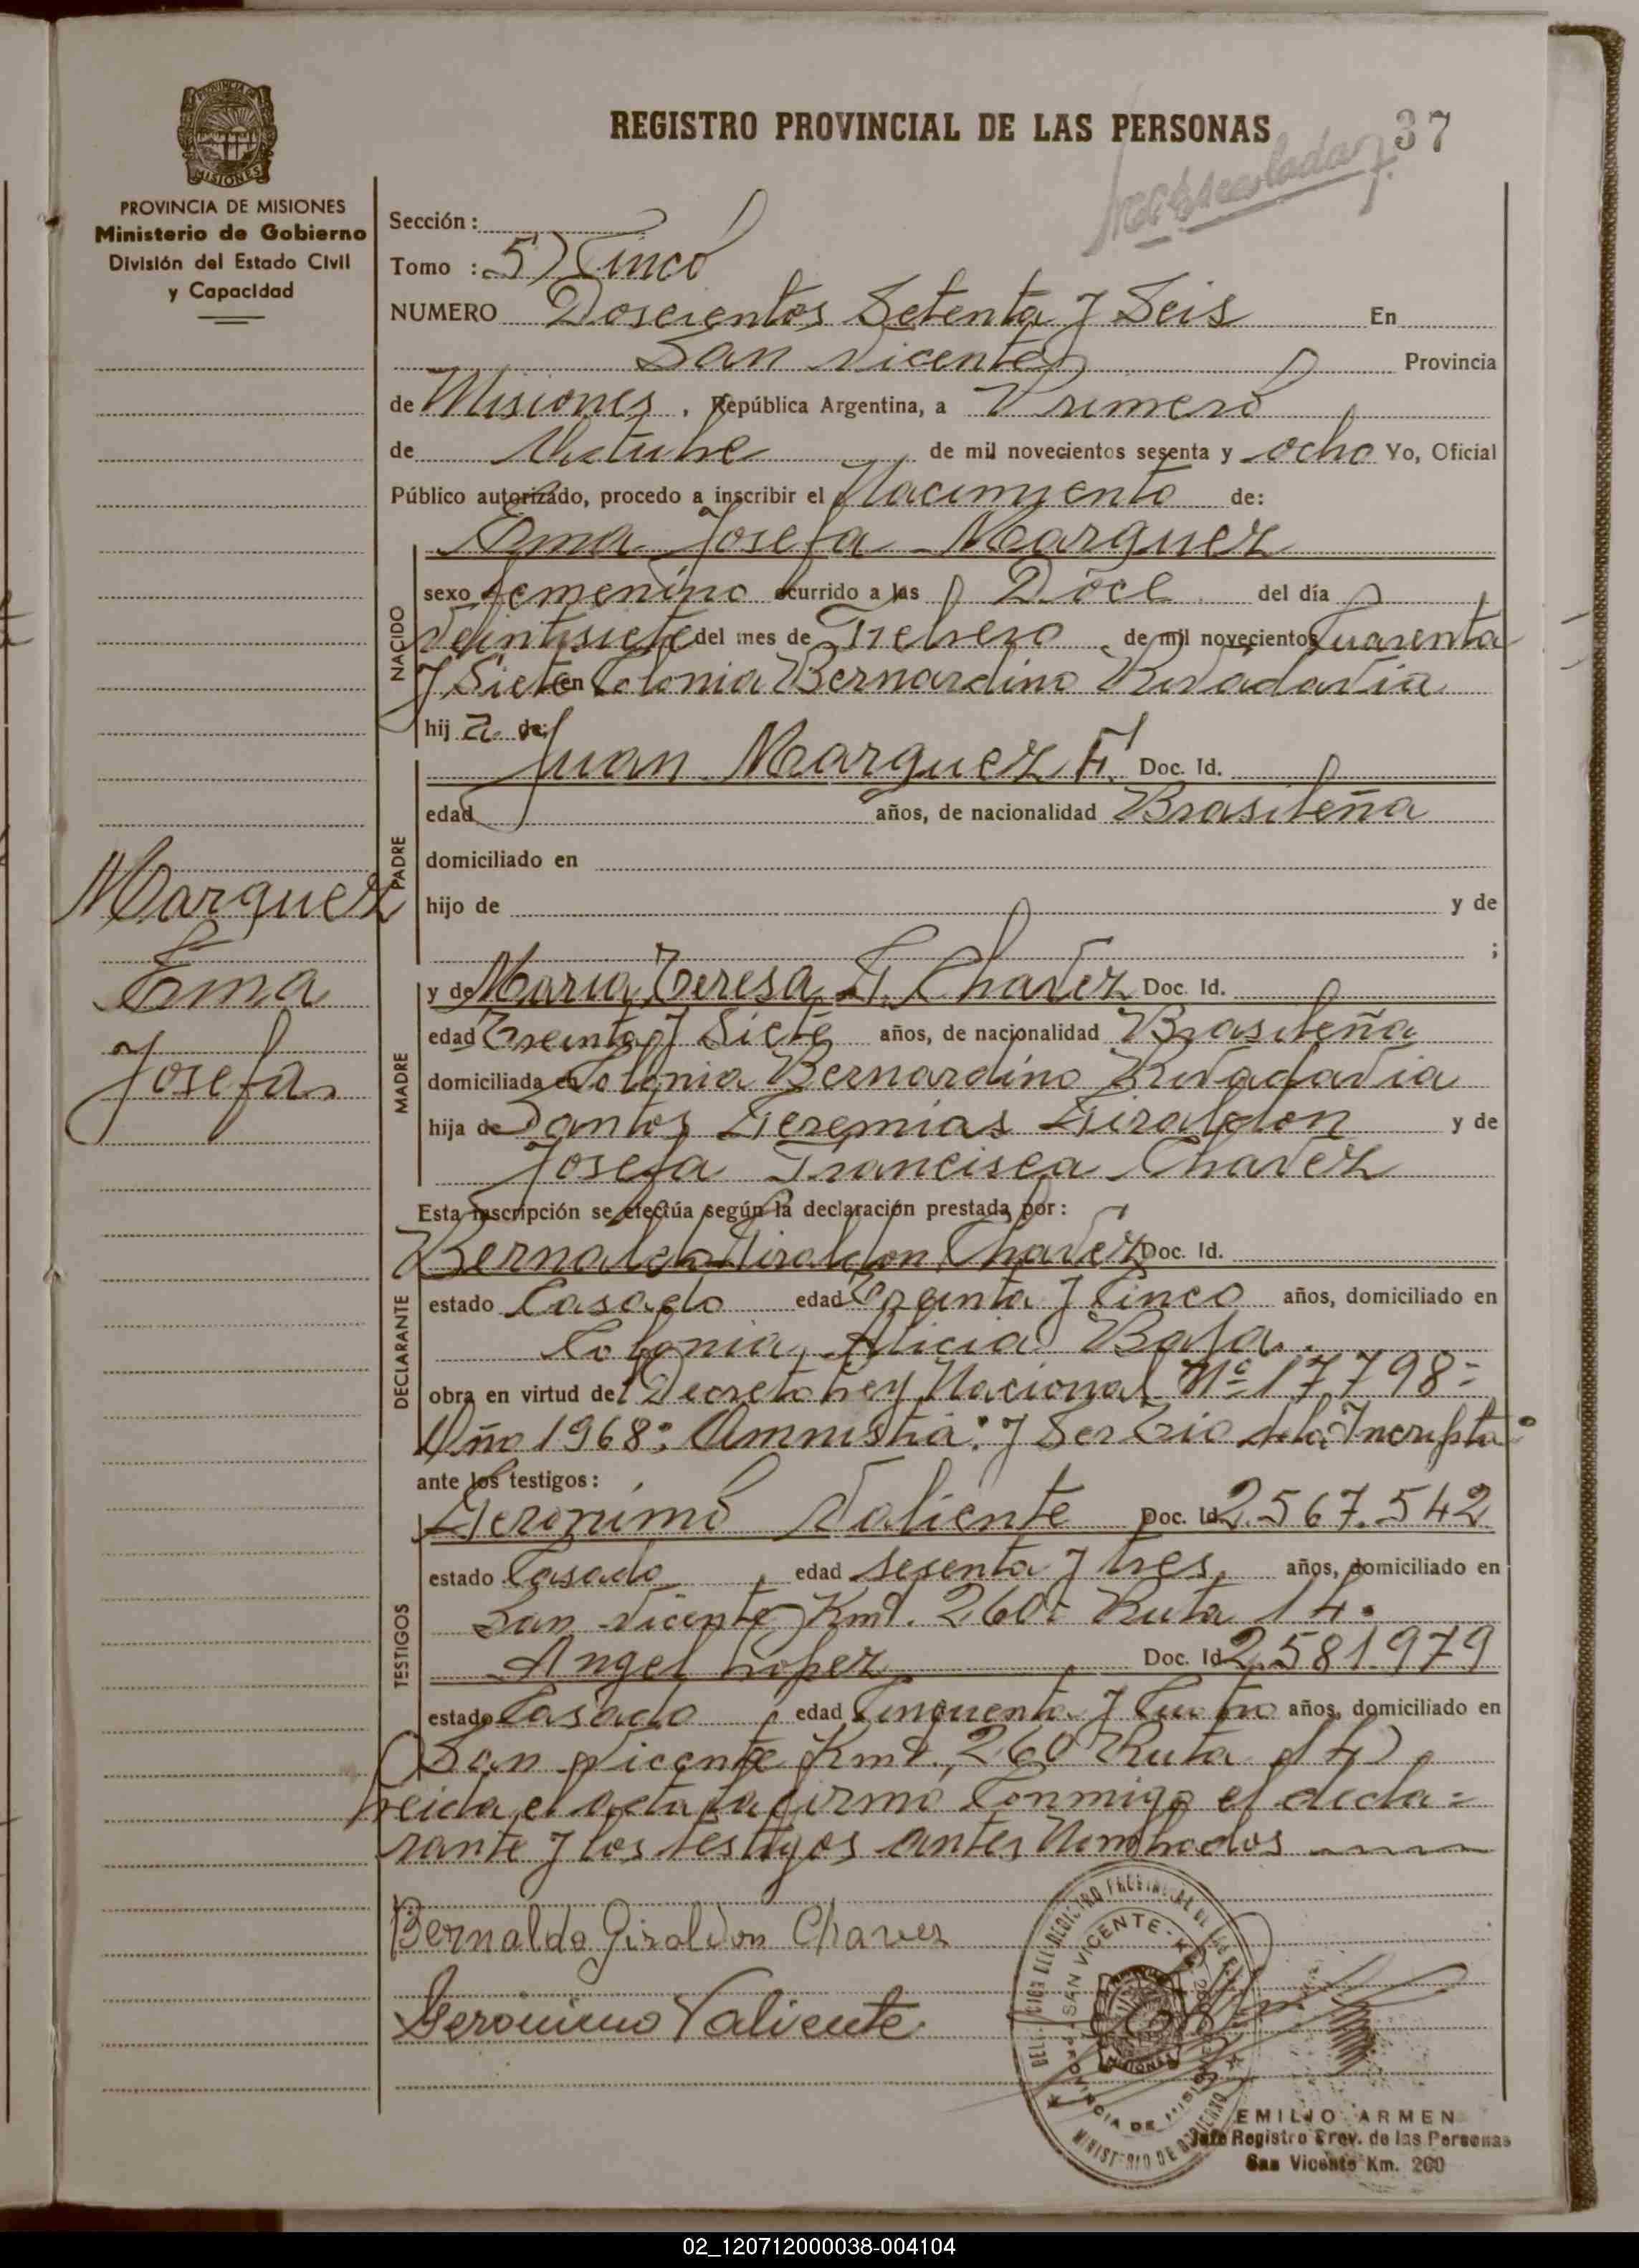 REGISTRO PROVINCIAL DE LAS PERSONAS
37
PROVINCIA DE MISIONES
Ministerio de Gobierno
División del Estado Civil
y Capacidad
Sección:
Tomo : 5) Cinco
NUMERO Doscientos Setenta y Seis En
San Vicente Provincia
de Misiones, República Argentina, a Primero
de Octubre de mil novecientos sesenta y ocho Yo, Oficial
Público autorizado, procedo a inscribir el Nacimiento de:
Ema Josefa Marquez
NACIDO
sexo femenino ocurrido a las Doce del día
Veintisiete del mes de Febrero de mil novecientos Cuarenta
y Siete en Colonia Bernardino Rivadavia
hija de:
Juan Marquez F. Doc. Id.
PADRE
edad años, de nacionalidad Brasileña
domiciliado en
hijo de y de
;
Marquez
Ema
Josefa
y de Maria Teresa G. Chavez Doc. Id.
MADRE
edad Treinta y Siete años, de nacionalidad Brasileña
domiciliada en Colonia Bernardino Rivadavia
hija de Santos Geremias Giraldon y de
Josefa Francisca Chavez
Esta inscripción se efectúa según la declaración prestada por:
Bernaldo Giraldon Chavez Doc. Id.
DECLARANTE
estado Casado edad Treinta y Cinco años, domiciliado en
Colonia Alicia Baja.
obra en virtud del Decreto Ley Nacional Nº 17,798=
Año 1968: Amnistia: y Ser Tio de la Incripta:
ante los testigos:
Geronimo Valiente Doc. Id. 2.567.542
TESTIGOS
estado Casado edad sesenta y tres años, domiciliado en
San Vicente Kmt. 260: Ruta 14.
Angel Lopez Doc. Id. 2.581.979
estado Casado edad Cinquenta y Cuatro años, domiciliado en
San Vicente Kmt. 260 Ruta 14)
Leida el acta la firmó Conmigo el decla=
rante y los testigos antes Nombrados
Bernaldo Giraldon Chavez
Geronimo Valiente
SAN VICENTE
PROVINCIA DE MISIONES
MINISTERIO DE GOBIERNO
EMILIO ARMEN
Jefe Registro Prov. de las Personas
San Vicente Km. 260
02_120712000038-004104